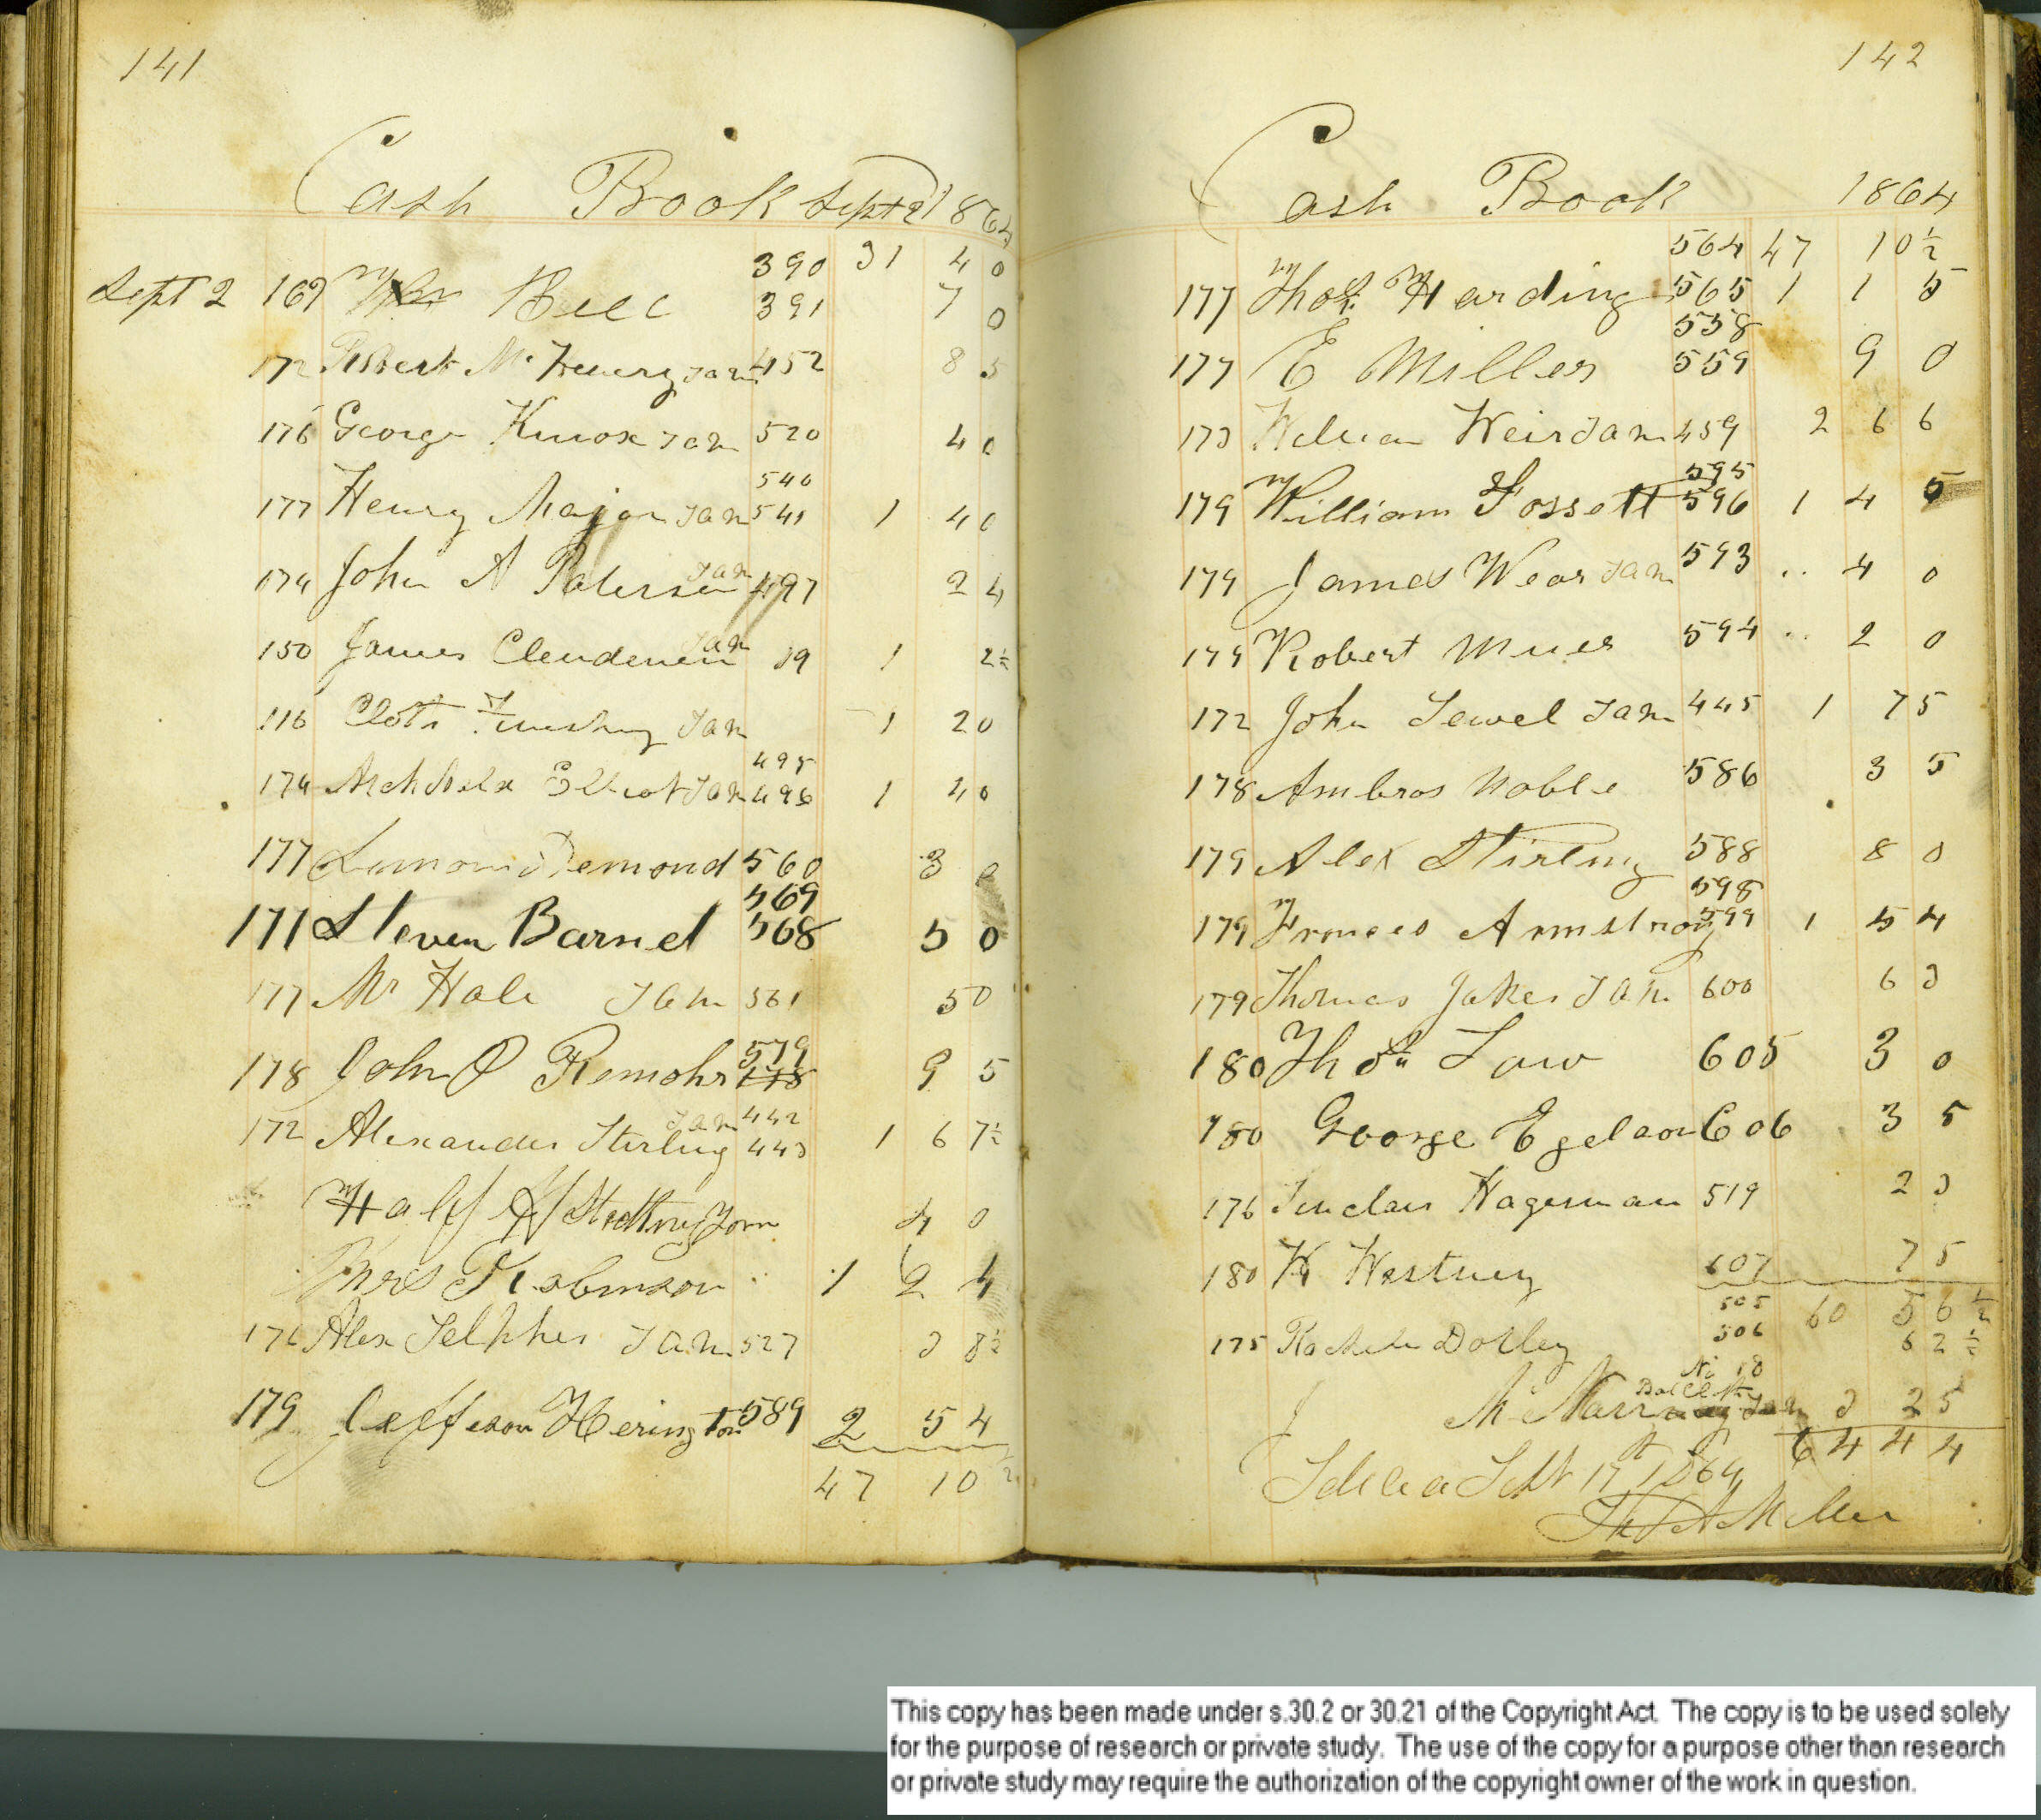 141
Cash Book Sept 2 1864
390 31 40
Sept 2 169 Bell 391 70
172 Robert McHenry Jan 452 85
176 George Knox Jan 520 40
540
177 Henry Major Jan 541 1 40
174 John A Paterson Jan 497 24
150 James Clendenen Jan 19 1 2½
116 Cloth Finishing Jan 1 20
495
174 Elliot Jan 496 1 40
177 Demond 560 30
569
171 Steven Barnet 568 50
177 Mr Hale Jan 561 50
579
178 John P Remohr 95
442
172 Alexander Stirling Jan 443 1 67½
Half 40
Mrs Robinson 1 24
176 Alex Jan 527 8½
179 Jeffeson Herington 589 2 54
47 10½
142
Cash Book 1864
564 47 10½
177 Thos Harding 565 1 15
558
177 E Miller 559 90
173 William Weir Jan 459 2 66
595
179 William Fossett 596 1 45
179 James Wear Jan 593 .. 40
179 Robert 594 .. 20
172 John Jewel Jan 445 1 75
178 Ambros Noble 586 35
179 Alex Stirling 588 80
598
179 Frances Armstrong 599 1 54
179 Thomas Jakes Jan 600 60
180 Thos Law 605 30
180 George 606 35
176 Sinclair Hagerman 519 20
180 W Westney 607 75
505 60 56½
175 Dolley 506 62½
No 18
Mc 3 25
64 44
Sept 17th 1864
Miller
This copy has been made under s.30.2 or 30.21 of the Copyright Act. The copy is to be used solely
for the purpose of research or private study. The use of the copy for a purpose other than research
or private study may require the authorization of the copyright owner of the work in question.